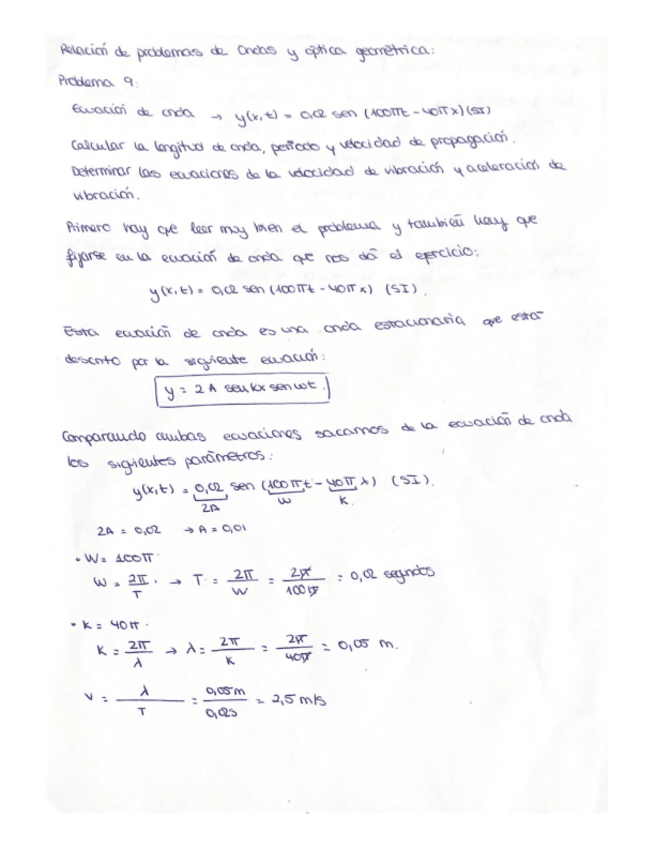 Relación de problemas de Ondas y óptica geométrica:
Problema 9:
Ecuación de onda → y(x,t) = 0,02 sen (100πt - 40πx) (SI)
Calcular la longitud de onda, período y velocidad de propagación.
Determinar las ecuaciones de la velocidad de vibración y aceleración de
vibración.
Primero hay que leer muy bien el problema y también hay que
fijarse en la ecuación de onda que nos da el ejercicio:
y(x,t) = 0,02 sen (100πt - 40πx) (SI).
Esta ecuación de onda es una onda estacionaria que está
descrito por la siguiente ecuación:
y = 2A sen kx sen wt.
Comparando ambas ecuaciones sacamos de la ecuación de onda
los siguientes parámetros:
y(x,t) = 0,02 sen (100πt - 40πx) (SI).
2A W K.
2A = 0,02 → A = 0,01
• W = 100π.
W = 2π/T. → T = 2π/W = 2π/100π = 0,02 segundos
• K = 40π.
K = 2π/λ → λ = 2π/K = 2π/40π = 0,05 m.
v = λ/T = 0,05m/0,02s = 2,5 m/s